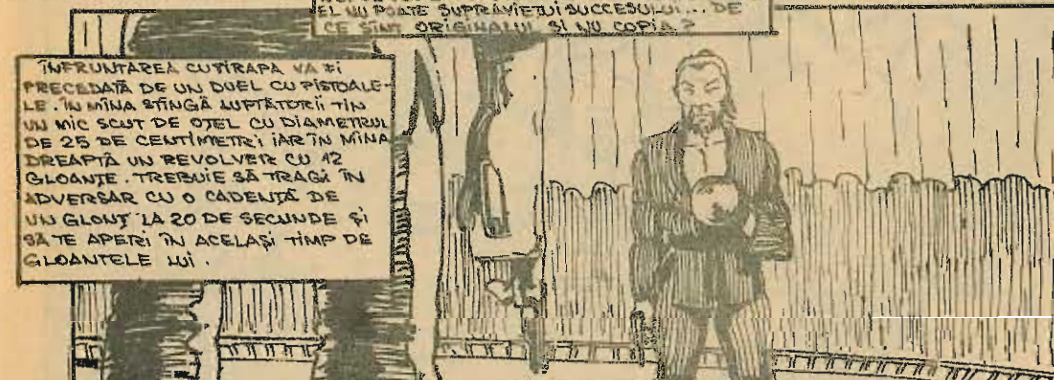 EL NU POATE SUPRAVIEȚUI SUCCESULUI... DE
CE SÎNT ORIGINALUL ȘI NU COPIA?
ÎNFRUNTAREA CU TIRAPA VA FI
PRECEDATĂ DE UN DUEL CU PISTOALE-
LE. ÎN MÎNA STÎNGĂ LUPTĂTORII ȚIN
UN MIC SCUT DE OȚEL CU DIAMETRUL
DE 25 DE CENTIMETRI IAR ÎN MÎNA
DREAPTĂ UN REVOLVER CU 12
GLOANȚE. TREBUIE SĂ TRAGI ÎN
ADVERSAR CU O CADENȚĂ DE
UN GLONȚ LA 20 DE SECUNDE ȘI
SĂ TE APERI ÎN ACELAȘI TIMP DE
GLOANTELE LUI.